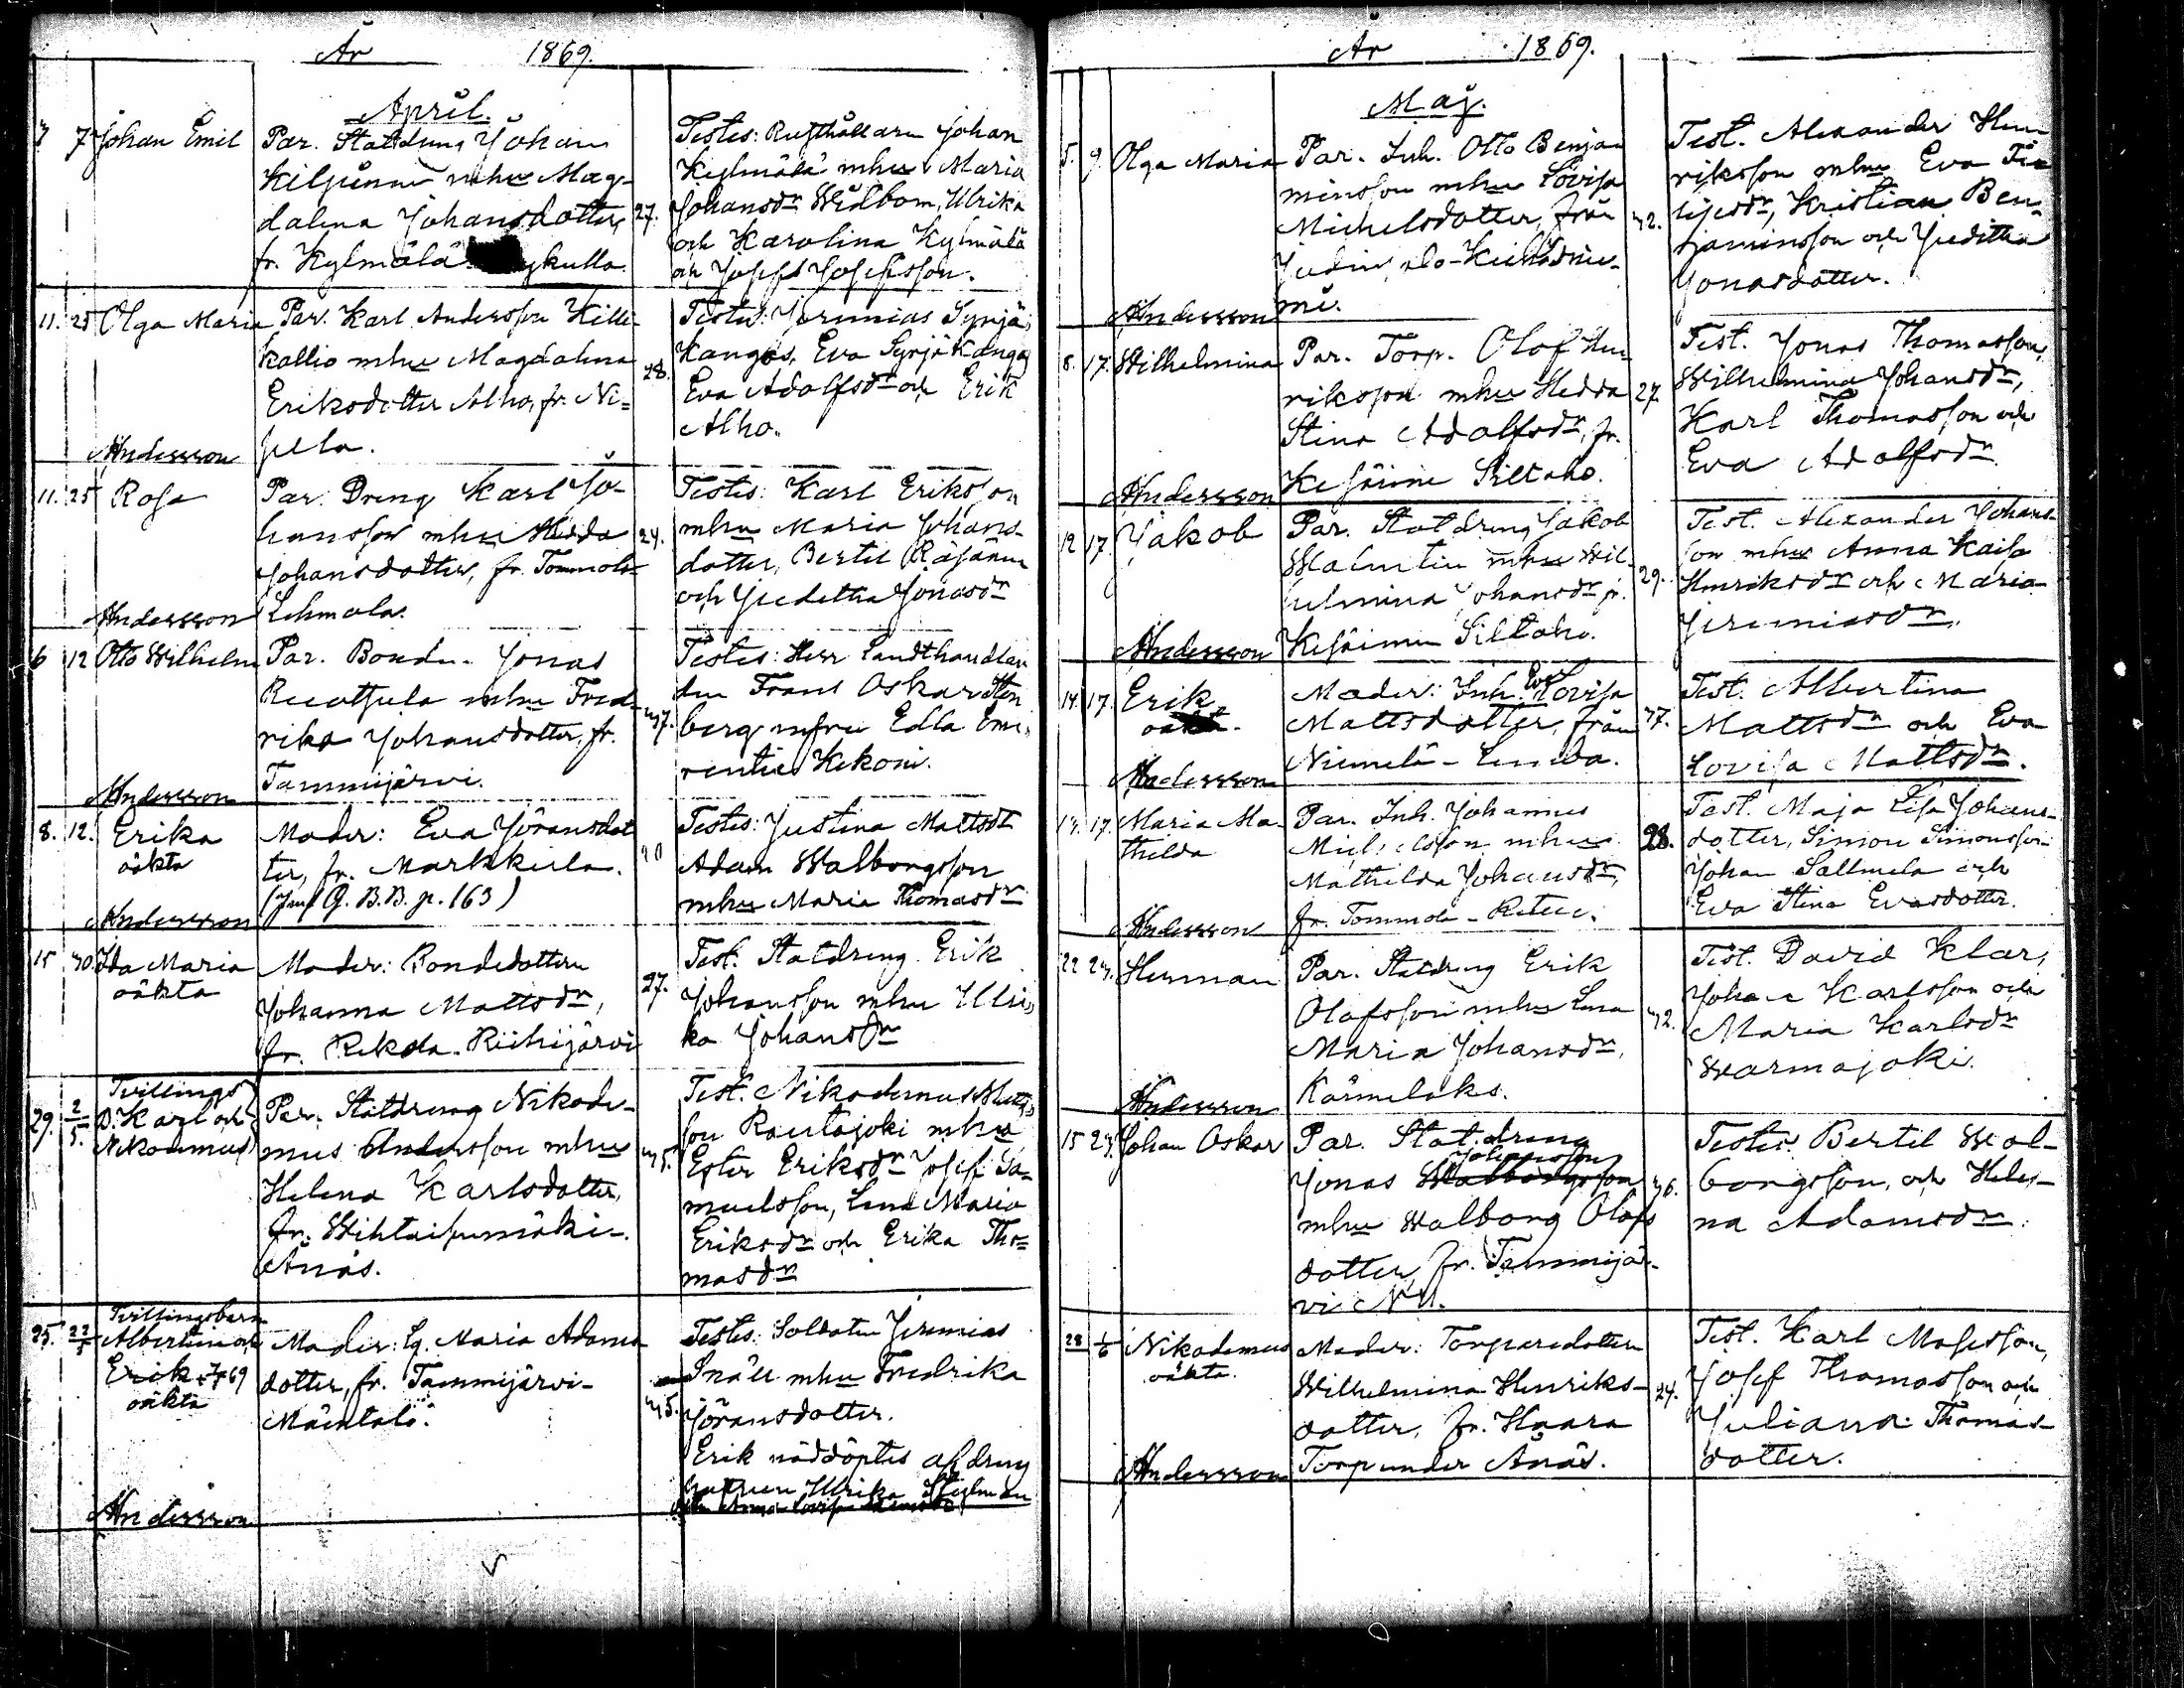 År 1869.
April.
7 7 Johan Emil
Par. Statdreng Johan
Kiljunen mhu Mag-
dalena Johansdotter,
fr. Kylmälä
27.
Testes: Rusthållaren Johan
Kylmälä mhu Maria
Johansdr Widbom, Ulrika
och Karolina Kylmälä
och Josef Josefsson.
11. 25 Olga Maria
Andersson
Par. Karl Andersson Killi-
kallio mhu Magdalena
Eriksdotter Alho, fr. Ni-
28.
Testes: Jeremias Syrjä-
kangas, Eva Syrjäkangas
Eva Adolfsdr och Erik
Alho.
11. 25 Rosa
Andersson
Par. Dreng Karl Jo-
hansson mhu Hedda
Johansdotter, fr. Tommola
Lehmola.
24.
Testes: Karl Eriksson
mhu Maria Johans-
dotter, Bertel Räsänen
och Juditha Jonasdr
6 12 Otto Wilhelm
Andersson
Par. Bonden Jonas
Ruotsula mhu Fred-
rika Johansdotter, fr.
Tammijärvi.
37.
Testes: Herr Landthandlan
den Frans Oskar Sten
berg mfru Edla Eme-
rentia Kekoni.
8. 12. Erika
oäkta
Andersson
Moder: Eva Göransdot
ter, fr. Markkula.
(Jmf G. B.B. p. 163)
Testes: Justina Mattsdr
Adam Walborgsson
mhu Maria Thomasdr
15 30 Ida Maria
oäkta
Moder: Bondedottern
Johanna Mattsdr,
fr. Rekola-Riihijärvi
27.
Test. Statdreng Erik
Johansson mhu Ulri-
ka Johansdr
29. 2/5. Tvillings
D. Karl och
Nikodemus
Par. Statdreng Nikode-
mus Andersson mhu
Helena Karlsdotter,
fr.
Ånäs.
35.
Test. Nikodemus Matts-
son Rautajoki mhu
Ester Eriksdr Josef Sa-
muelsson, Lena Maria
Eriksdr och Erika Tho-
masdr
25. 22/5 Tvillingsbarn
Albertina och
Erik + 69
oäkta
Andersson
Moder: Lg. Maria Adams
dotter, fr. Tammijärvi-
Mäntälä.
35.
Testes: Soldaten Jeremias
Snäll mhu Fredrika
Göransdotter.
Erik nöddöptes af dreng
hustrun Ulrika
År 1869.
Maj.
5. 9. Olga Maria
Andersson
Par. Inh. Otto Benja-
minsson mhu Lovisa
Michelsdotter, från
32.
Test. Alexander Hen-
riksson mhu Eva
Kristian Ben-
jaminsson och Juditha
Jonasdotter.
8. 17. Wilhelmina
Andersson
Par. Torp. Olof Hen-
riksson mhu Hedda
Stina Adolfsdr, fr.
Kesäinen Siltaho.
27.
Test. Jonas Thomasson,
Wilhelmina Johansdr,
Karl Thomasson och
Eva Adolfsdr
12 17. Jakob
Andersson
Par. Statdreng Jakob
Walentin mhu Wil-
helmina Johansdr fr.
Kesäinen Siltaho.
29.
Test. Alexander Johans-
son mhu Anna Kaisa
Henriksdr och Maria
Jeremiasdr.
14. 17. Erik
oäkta.
Andersson
Moder: Inh. Eva Lovisa
Mattsdotter, från
Niemelä-
37.
Test. Albertina
Mattsdr och Eva
Lovisa Mattsdr.
17. Maria Ma-
thilda
Andersson
Par. Inh. Johannes
Michelsson mhu
Mathilda Johansdr,
fr. Tommola-
28.
Test. Maja Lisa Johans-
dotter, Simon Simonsson
Johan Sallmela och
Eva Stina Evasdotter.
22 23. Herman
Andersson
Par. Statdreng Erik
Olofsson mhu Lena
Maria Johansdr,
Kärmelaks.
32.
Test. David Klar,
Johan Karlsson och
Maria Karlsdr
Warmajoki.
15 23. Johan Oskar
Par. Statdreng
Johansson
Jonas Walborgsson
mhu Walborg Olofs
dotter, fr. Tammijär-
vi
36.
Testes Bertel Wal-
borgsson, och Hele-
na Adamsdr.
28 1/6 Nikodemus
oäkta.
Andersson
Moder: Torparedottern
Wilhelmina Henriks-
dotter, fr. Haara
Torp under Ånäs.
24.
Test. Karl Mosesson,
Josef Thomasson och
Juliana Thomas-
dotter.